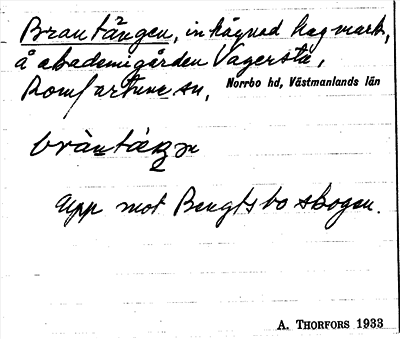 Brantängen, inhägnad hagmark,
å akademigården Vagersta,
Romfartuna sn, Norrbo hd, Västmanlands län
upp mot Bengtsboskogen.
A. THORFORS 1933